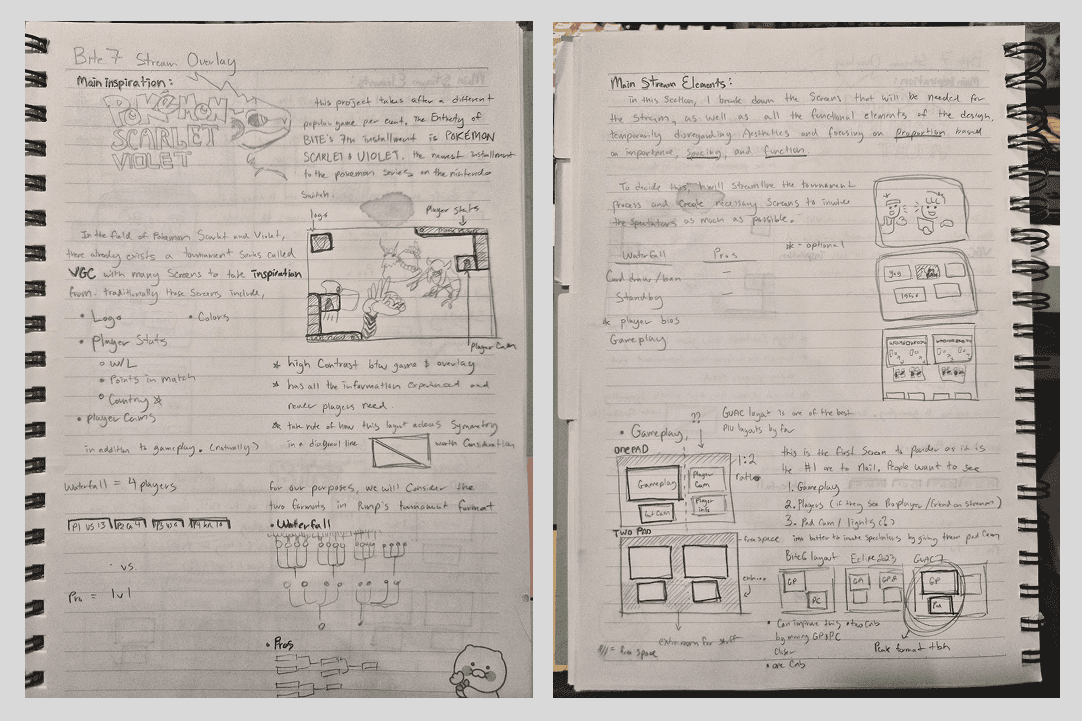 Bite 7 Stream Overlay
Main inspiration:
POKéMON
SCARLET
VIOLET
this project takes after a different
popular game per event. The Entirety of
BITE's 7th installment is POKEMON
SCARLET & VIOLET. the newest installment
to the pokemon series on the nintendo
Switch.
logo
Player Stats
In the field of Pokemon Scarlet and Violet,
there already exists a tournament series called
VGC with many Screens to take inspiration
from. traditionally those Screens include,
• Logo
• Colors
• Player Stats
○ W/L
• Points in match
○ Country
• Player Cams
in addition to gameplay. (naturally)
Player Cam
* high Contrast btw game & overlay
* has all the information experienced and
newer players need.
* take note of how this layout achieves Symmetry
in a diagonal line
worth Consideration
Waterfall = 4 players
for our purposes, we will Consider the
two formats in Pimp's tournament format
• Waterfall
P1 vs 13
vs
Pro = 1v1
• Pros
Main Stream Elements:
in this Section, I break down the Screens that will be needed for
the Stream, as well as all the functional elements of the design,
temporarily disregarding Aesthetics and focusing on proportion based
on importance, spacing, and function.
To decide this, I will streamline the tournament
process and Create necessary Screens to involve
the Spectators as much as possible.
* = optional
Waterfall
Pros
Card draw/ban
—
Standby
—
* player bios
Gameplay
??
GUAC layout is one of the best
PIU layouts by far
• Gameplay,
ONE PAD
Gameplay
Player Cam
Player info
1:2
ratio
this is the first Screen to ponder as it is
the #1 one to Nail. People want to see
1. Gameplay
2. Players (if they see Pro player/friend on stream)
3. Pad Cam / lights (?)
TWO PAD
free space
imo better to involve Spectators by giving them pad Cam
Bite 6 layout
Eclipse 2023
GUAC 7
GP
PC
GP
• Can improve this
by moving GP & PC
Closer
• one Cab
• two Cab
Peak format tbh
extra room for stuff
/// = free space